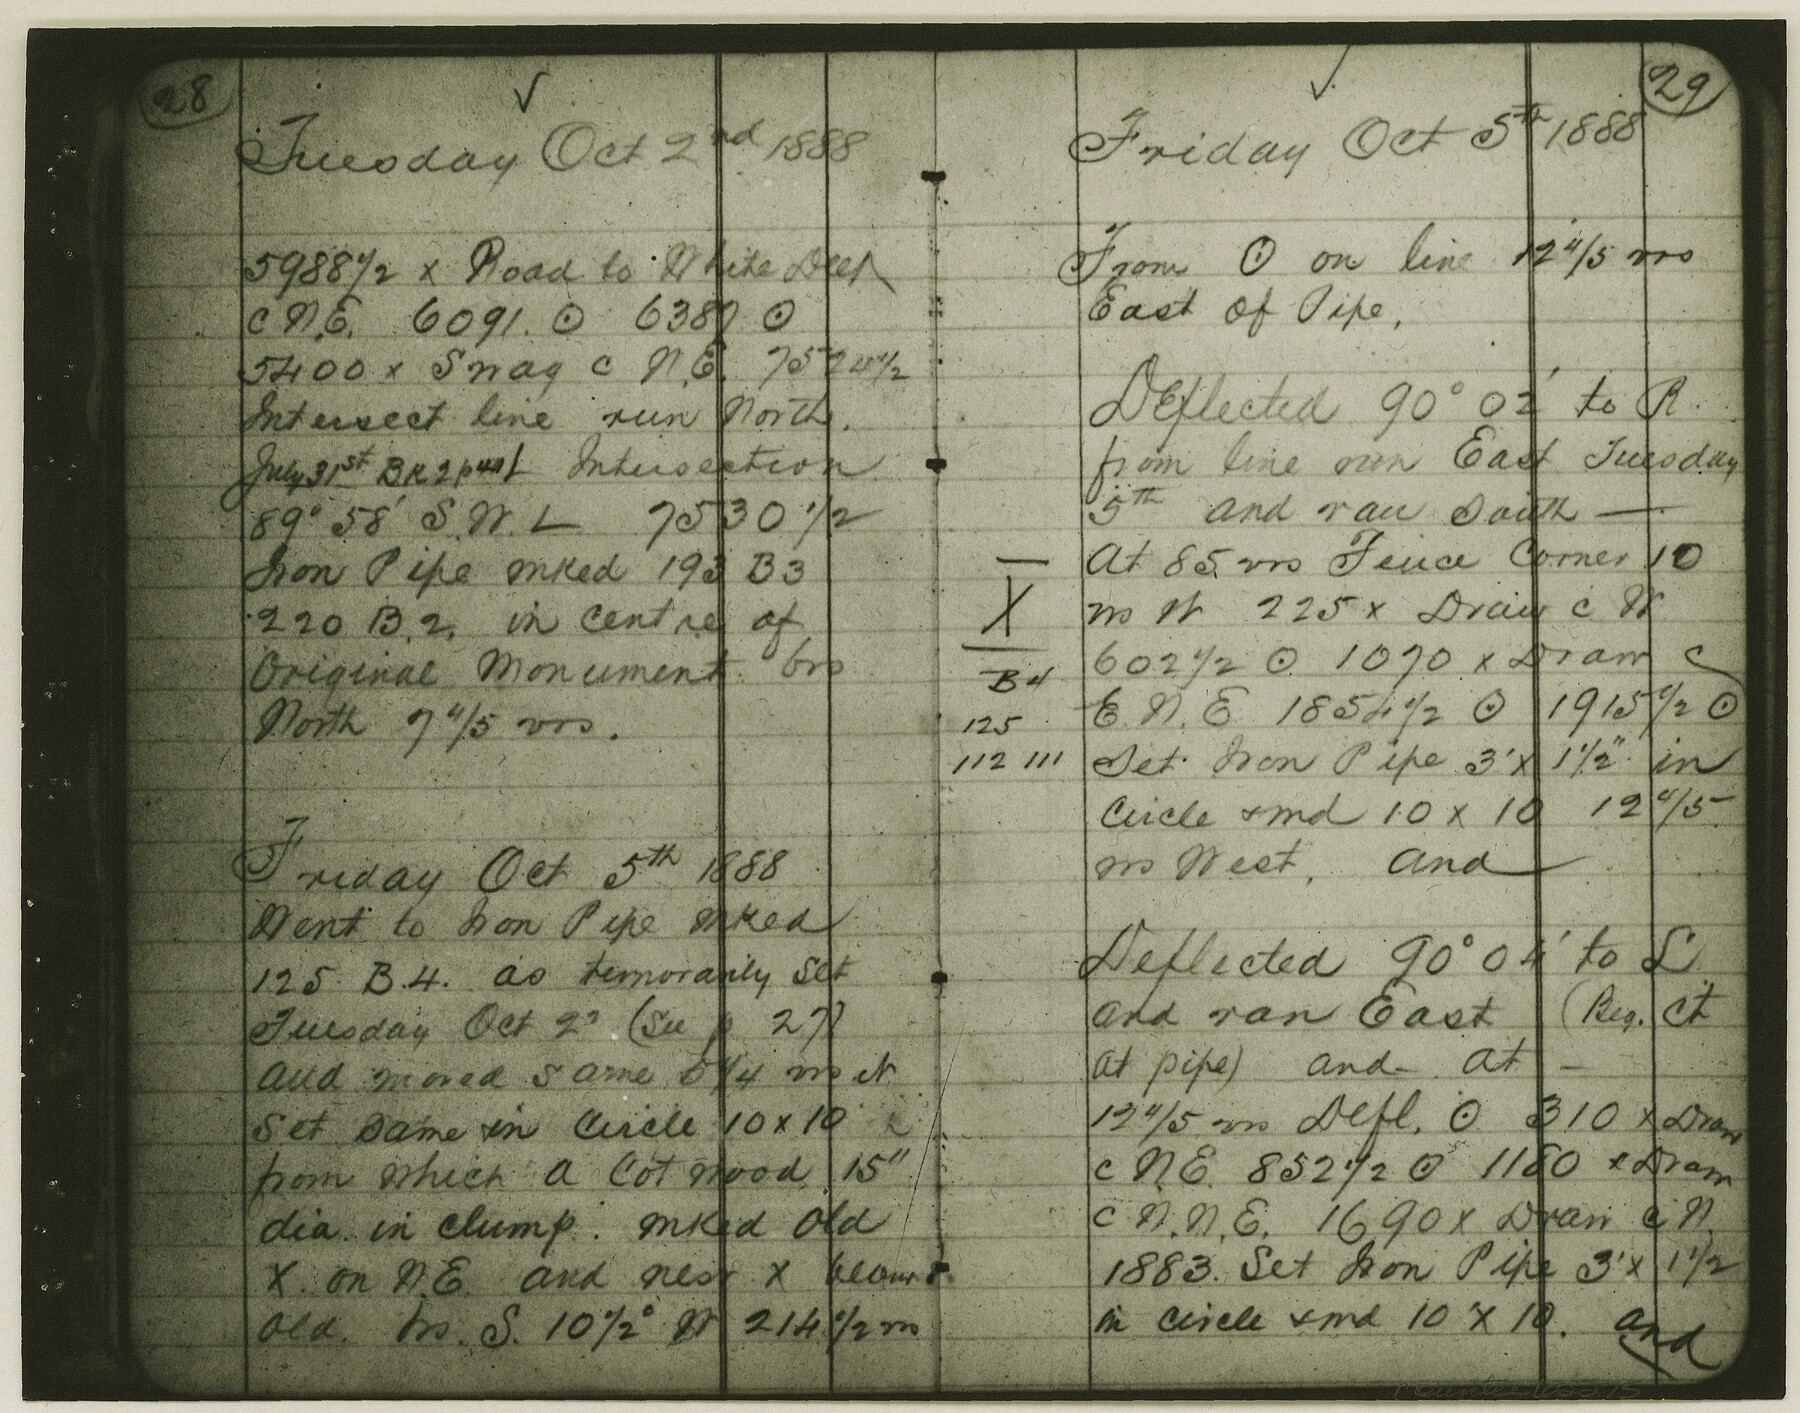 28
Tuesday Oct 2nd 1888
5988 1/2 x Road to White Deer
c N.E. 6091. ⊙ 6387 ⊙
5400 x Swag c N.E. 7524 1/2
Intersect line run North.
July 31st Bk 2 p Intersection
89° 58' S.W. L 7530 1/2
Iron Pipe mked 193 B3
220 B.2. in centre of
Original Monument brs
North 7 4/5 vrs.
Friday Oct 5th 1888
Went to Iron Pipe mked
125 B.4. as temorarily set
Tuesday Oct 2d (See p 27)
and moved same vrs
Set same in Circle 10 x 10
from which a Cotwood 15"
dia. in clump. mked old
X. on N.E. and new X below
old. brs. S. 10 1/2° W 214 1/2 vrs
29
Friday Oct 5th 1888
From ⊙ on line 12 4/5 vrs
East of Pipe.
Deflected 90° 02' to R.
from line run East Tuesday
5th and ran South —
At 85 vrs Fence Corner 10
vrs W 225 x Draw c W
602 1/2 ⊙ 1070 x Draw c
E.N.E 1854 1/2 ⊙ 1915 1/2 ⊙
X
B4
125
112 111
Set Iron Pipe 3' x 1 1/2" in
Circle & md 10 x 10 12 4/5
vrs West. and
Deflected 90° 04' to L
and ran East (Beg. Ct
at pipe) and - at -
12 4/5 vrs Defl. ⊙ 310 x Draw
c N.E. 852 1/2 ⊙ 1180 x Draw
c N.N.E. 1690 x Draw c N.
1883. Set Iron Pipe 3' x 1 1/2
in Circle & md 10 x 10. and